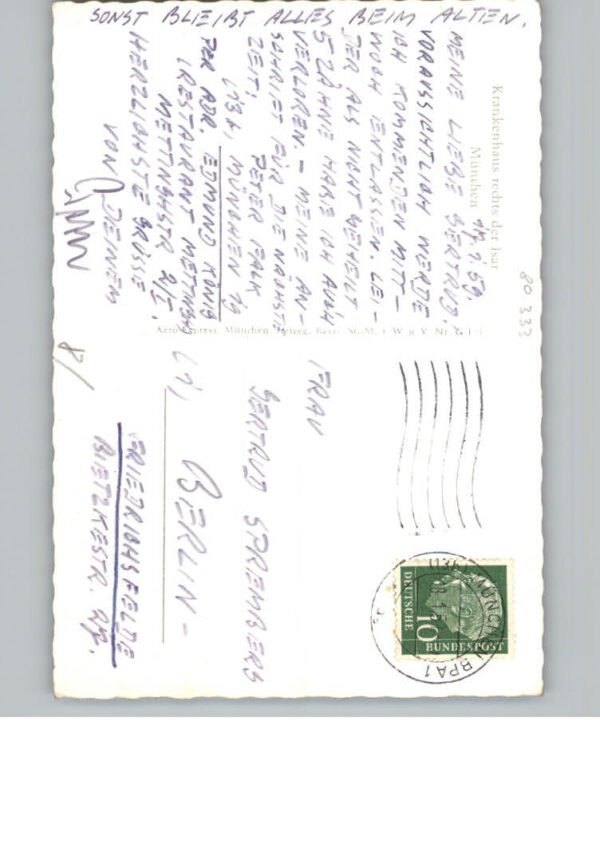 Krankenhaus rechts der Isar
München
1. 59.
MEINE LIEBE GERTRUD.
VORAUSSICHTLICH WERDE
ICH KOMMENDEN MITT-
WOCH ENTLASSEN. LEI-
DER ALS NICHT GEHEILT
5 ZÄHNE HABE ICH AUCH
VERLOREN – MEINE AN-
SCHRIFT FÜR DIE NÄCHSTE
ZEIT. PETER FALK
(13b) MÜNCHEN 19
PER ADR. EDMUND KÖNIG
(RESTAURANT METTING)
METTINGHSTR. 2/I.
HERZLICHSTE GRÜSSE
VON DEINEM
SONST BLEIBT ALLES BEIM ALTEN.
80 333
Aero-Express, München
FRAU
GERTRUD SPREMBERG
(1) BERLIN –
FRIEDRICHSFELDE
BIETZKESTR.
DEUTSCHE
BUNDESPOST
10
MÜNCHEN BPA1